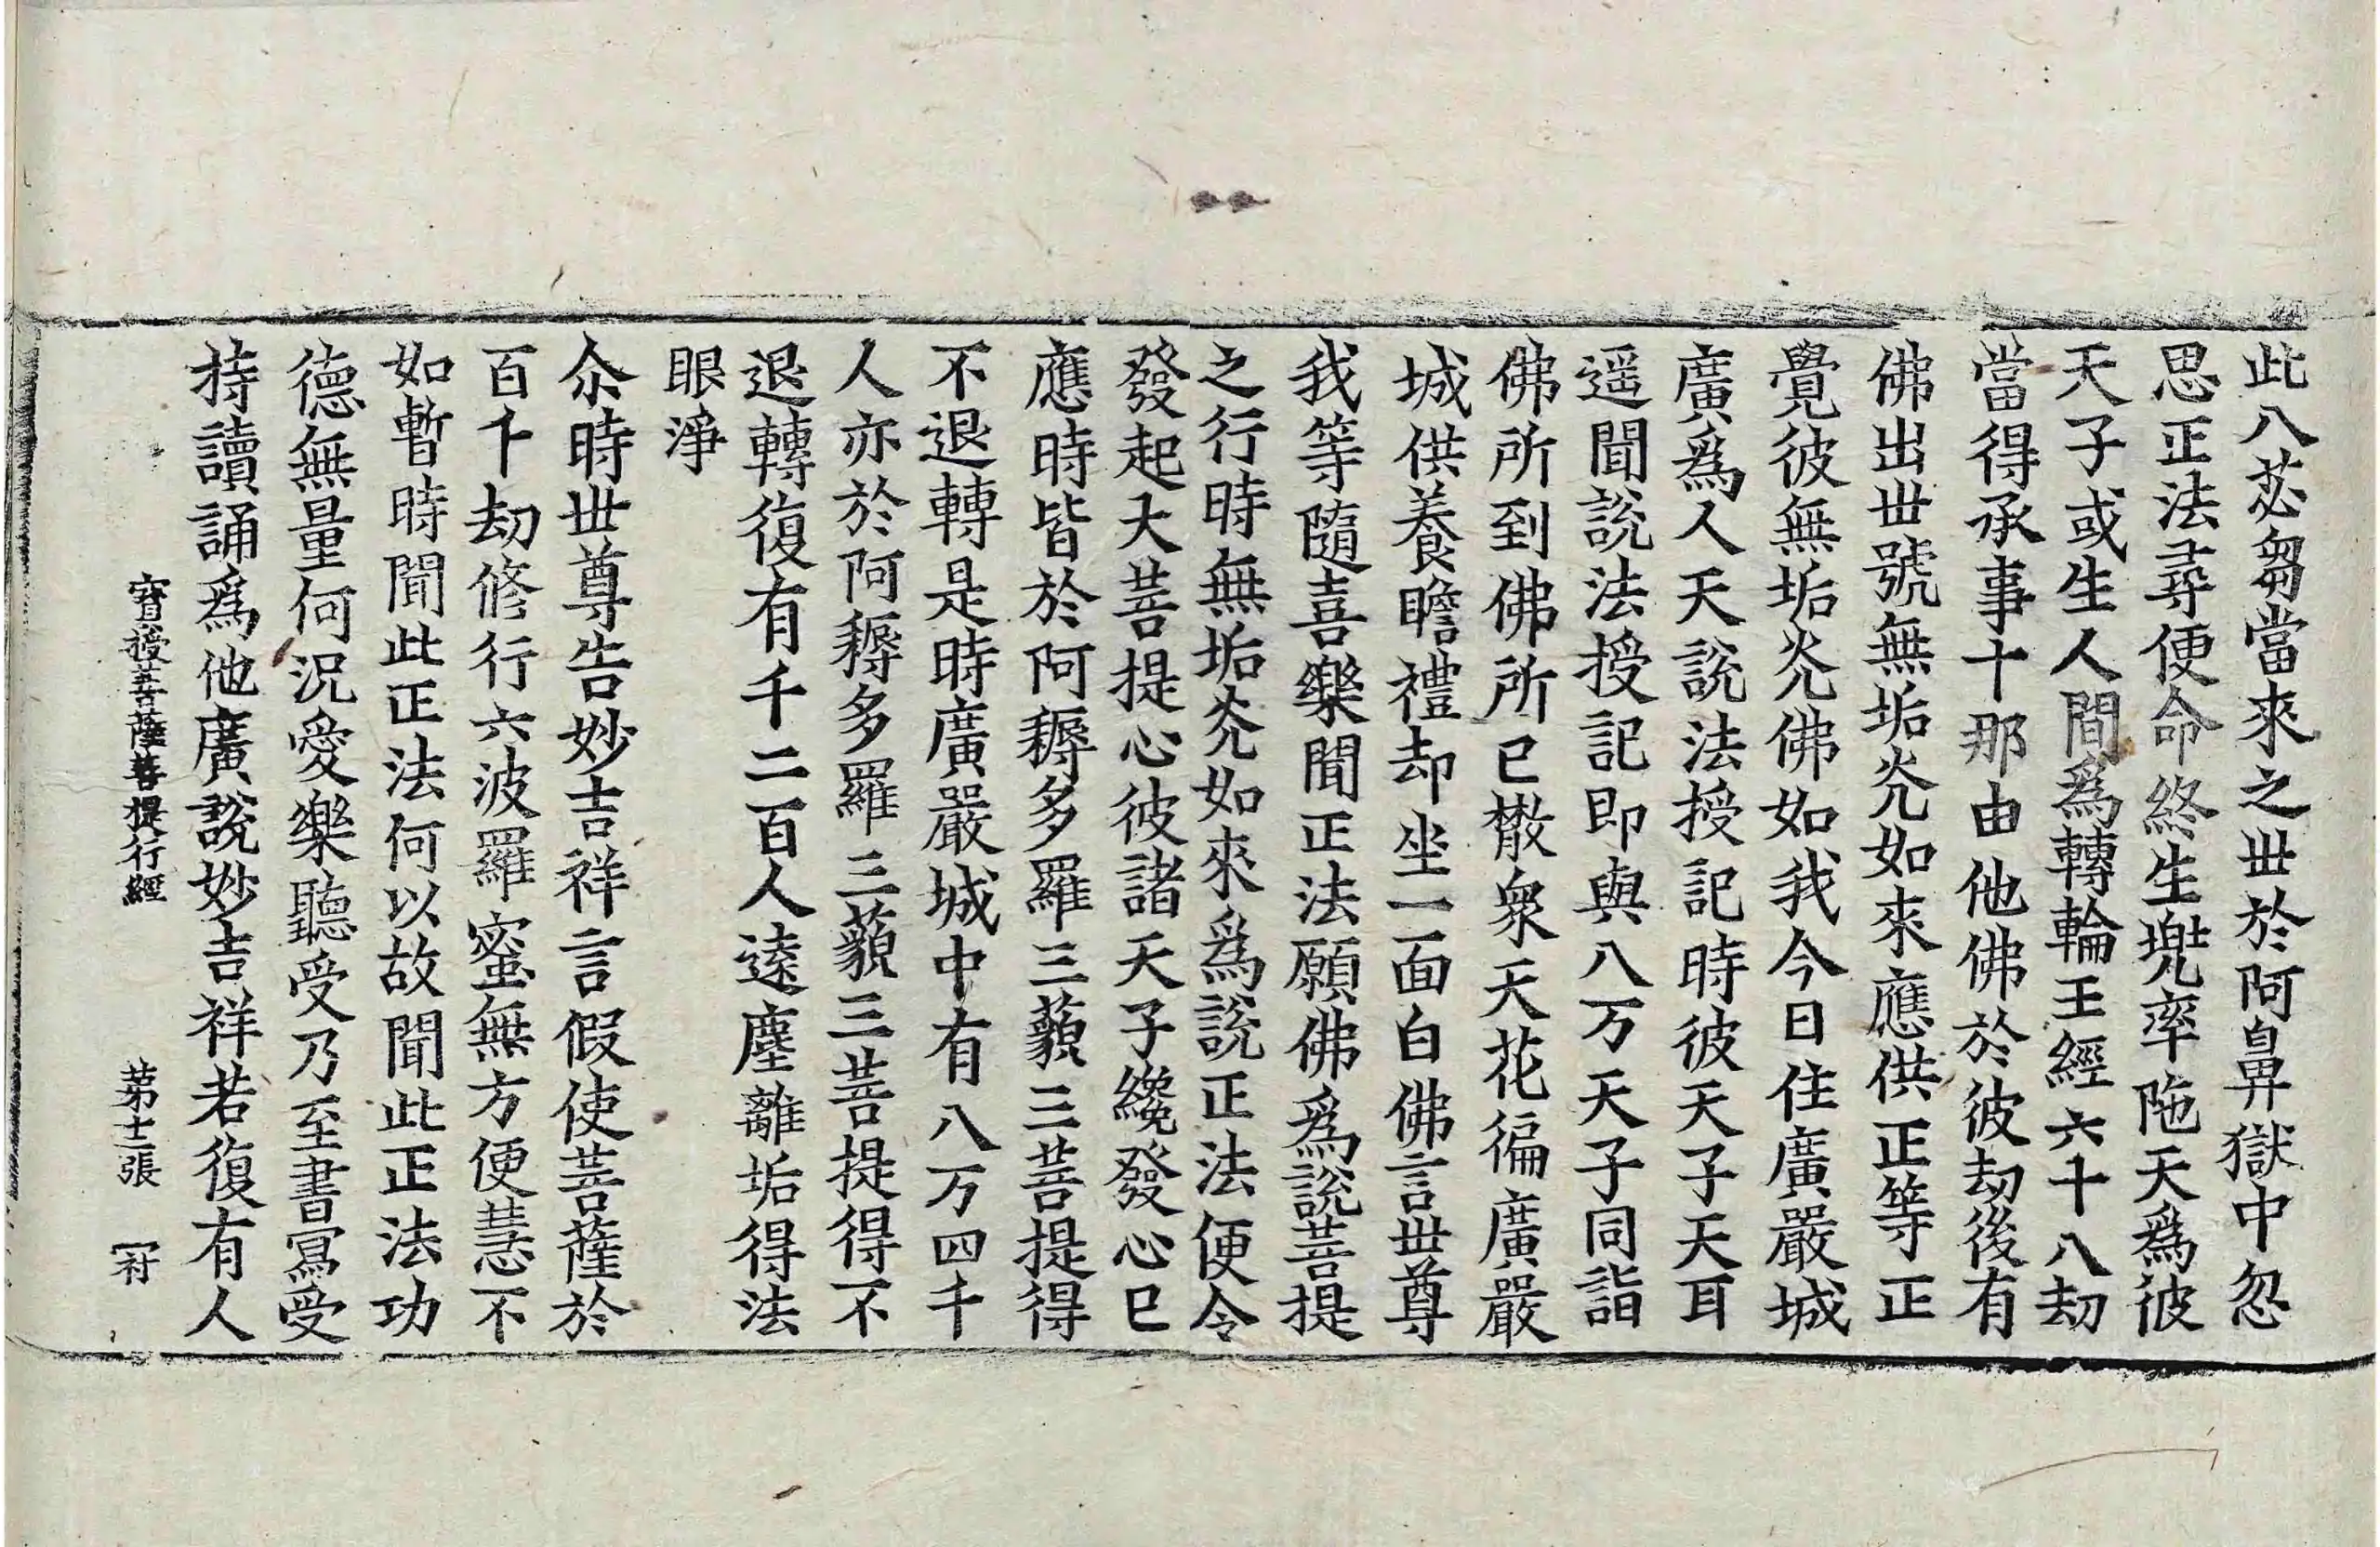 此八苾芻當來之世於阿鼻獄中忽
思正法尋便命終生兠率陁天爲彼
天子或生人間爲轉輪王經六十八劫
當得承事十那由他佛於彼劫後有
佛出世號無垢光如來應供正等正
覺彼無垢光佛如我今日住廣嚴城
廣爲人天說法授記時彼天子天耳
遥聞說法授記即與八万天子同詣
佛所到佛所已散衆天花徧廣嚴
城供養瞻禮却坐一面白佛言世尊
我等隨喜樂聞正法願佛爲說菩提
之行時無垢光如來爲說正法便令
發起大菩提心彼諸天子纔發心已
應時皆於阿耨多羅三藐三菩提得
不退轉是時廣嚴城中有八万四千
人亦於阿耨多羅三藐三菩提得不
退轉復有千二百人遠塵離垢得法
眼淨
尒時世尊告妙吉祥言假使菩薩於
百千劫修行六波羅蜜無方便慧不
如暫時聞此正法何以故聞此正法功
德無量何況愛樂聽受乃至書寫受
持讀誦爲他廣說妙吉祥若復有人
寶授菩薩菩提行經 第十二張 符